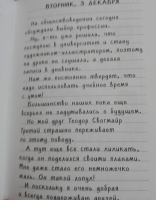 ВТОРНИК, 3 ДЕКАБРЯ
На обществоведении сегодня
обсуждали выбор профессии.
Ну, я-то уже решила, что
поступлю в университет и стану
художником-иллюстратором, поэтому
на уроке не слушала, а делала
записи в дневнике.
Нам же постоянно твердят, что
надо использовать учебное время
с умом!
Большинство наших пока еще
всерьез не задумывались о будущем.
Но мой друг Теодор Свагмайр
Третий страшно переживает
по этому поводу.
А тут еще все стали хихикать,
когда он поделился своими планами.
Мне даже стало его немножечко
жаль. Он такой лапух!
И поскольку я очень добрая
и всегда поддерживаю друзей,